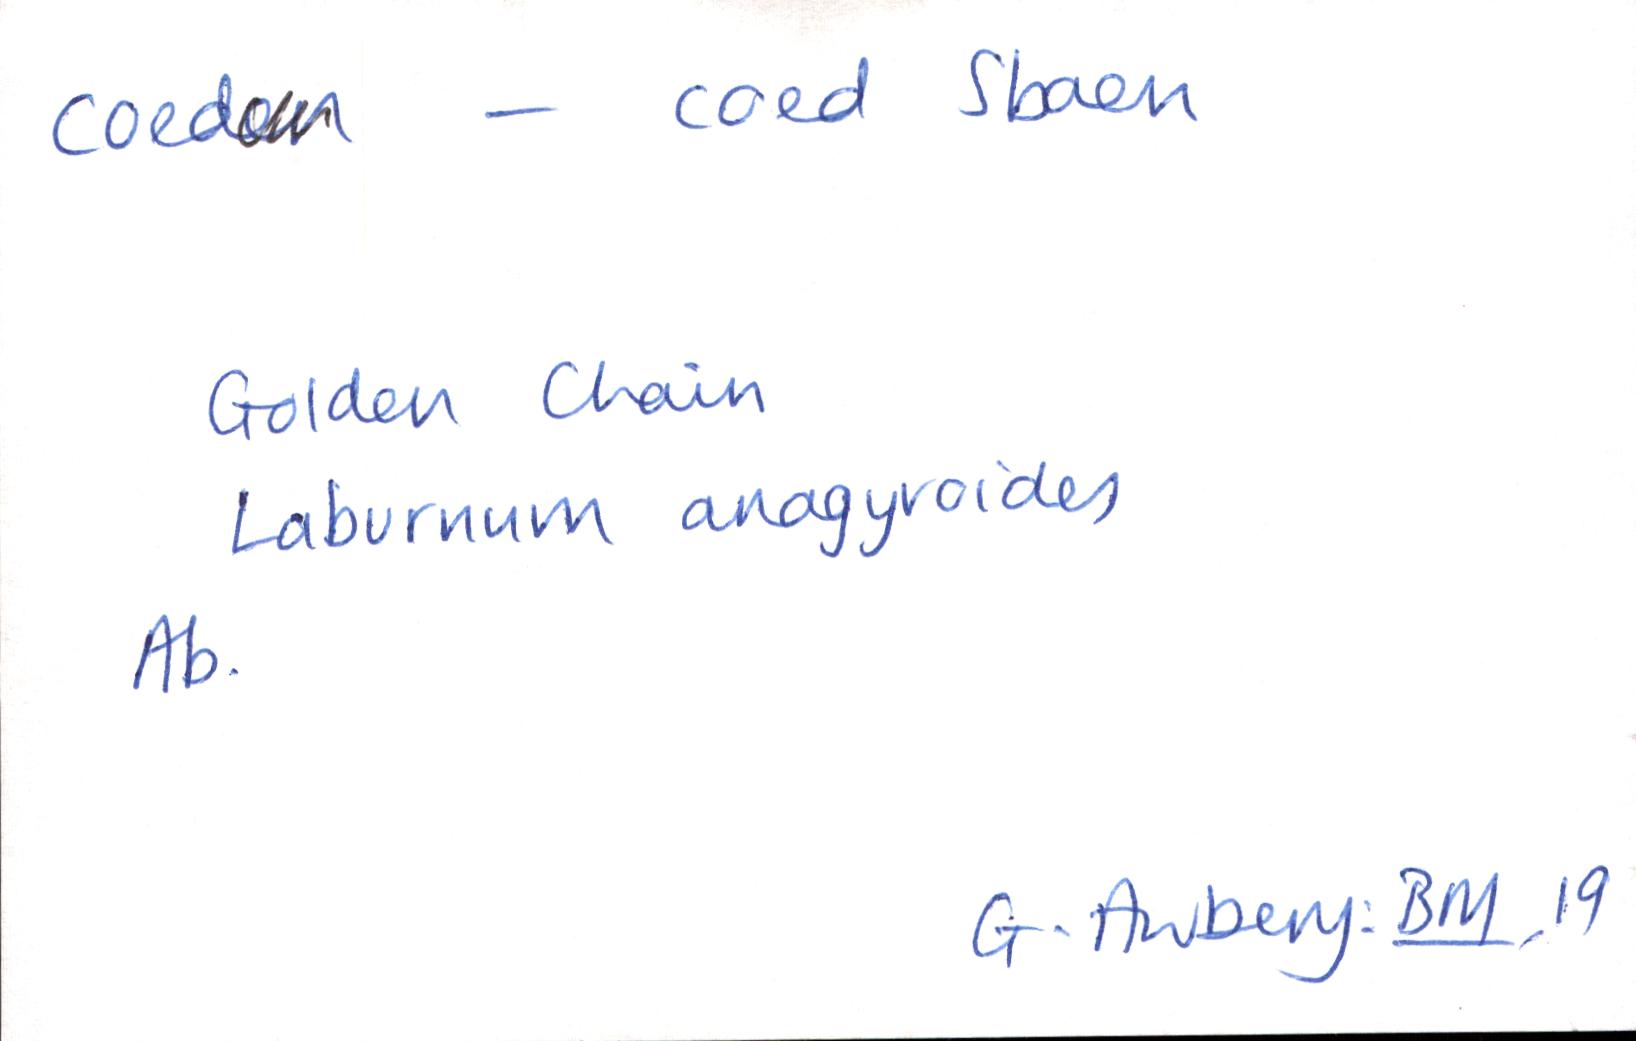 — coed Sbaen
Golden Chain
Laburnum anagyroides
Ab.
G. Awbery: BM, 19